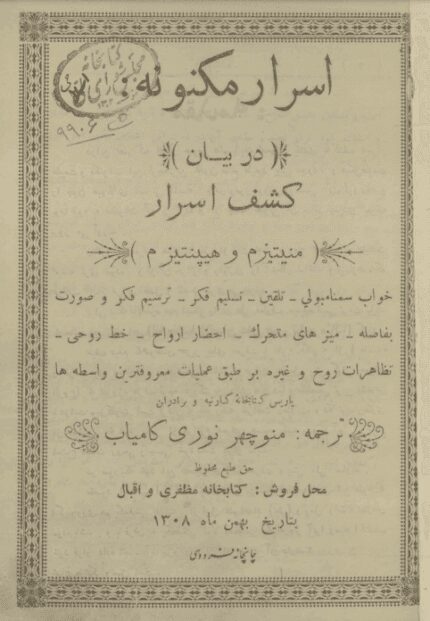 اسرار مکنونه:
کتابخانه
مجلس شورای ملی
۹۹۰۶
( در بیـــان )
کشف اسرار
( منیتیزم و هیپنتیزم )
خواب سمنامبولی ـ تلقین ـ تسلیم فکر ـ ترسیم فکر و صورت
بفاصله ـ میز های متحرك ـ احضار ارواح ـ خط روحی ـ
تظاهرات روح و غیره بر طبق عملیات معروفترین واسطه ها
پاریس کتابخانهٔ گارنیه و برادران
ترجمه: منوچهر نوری کامیاب
حق طبع محفوظ
محل فروش : کتابخانه مظفری و اقبال
بتاریخ بهمن ماه ۱۳۰۸
چاپخانه فردوسی